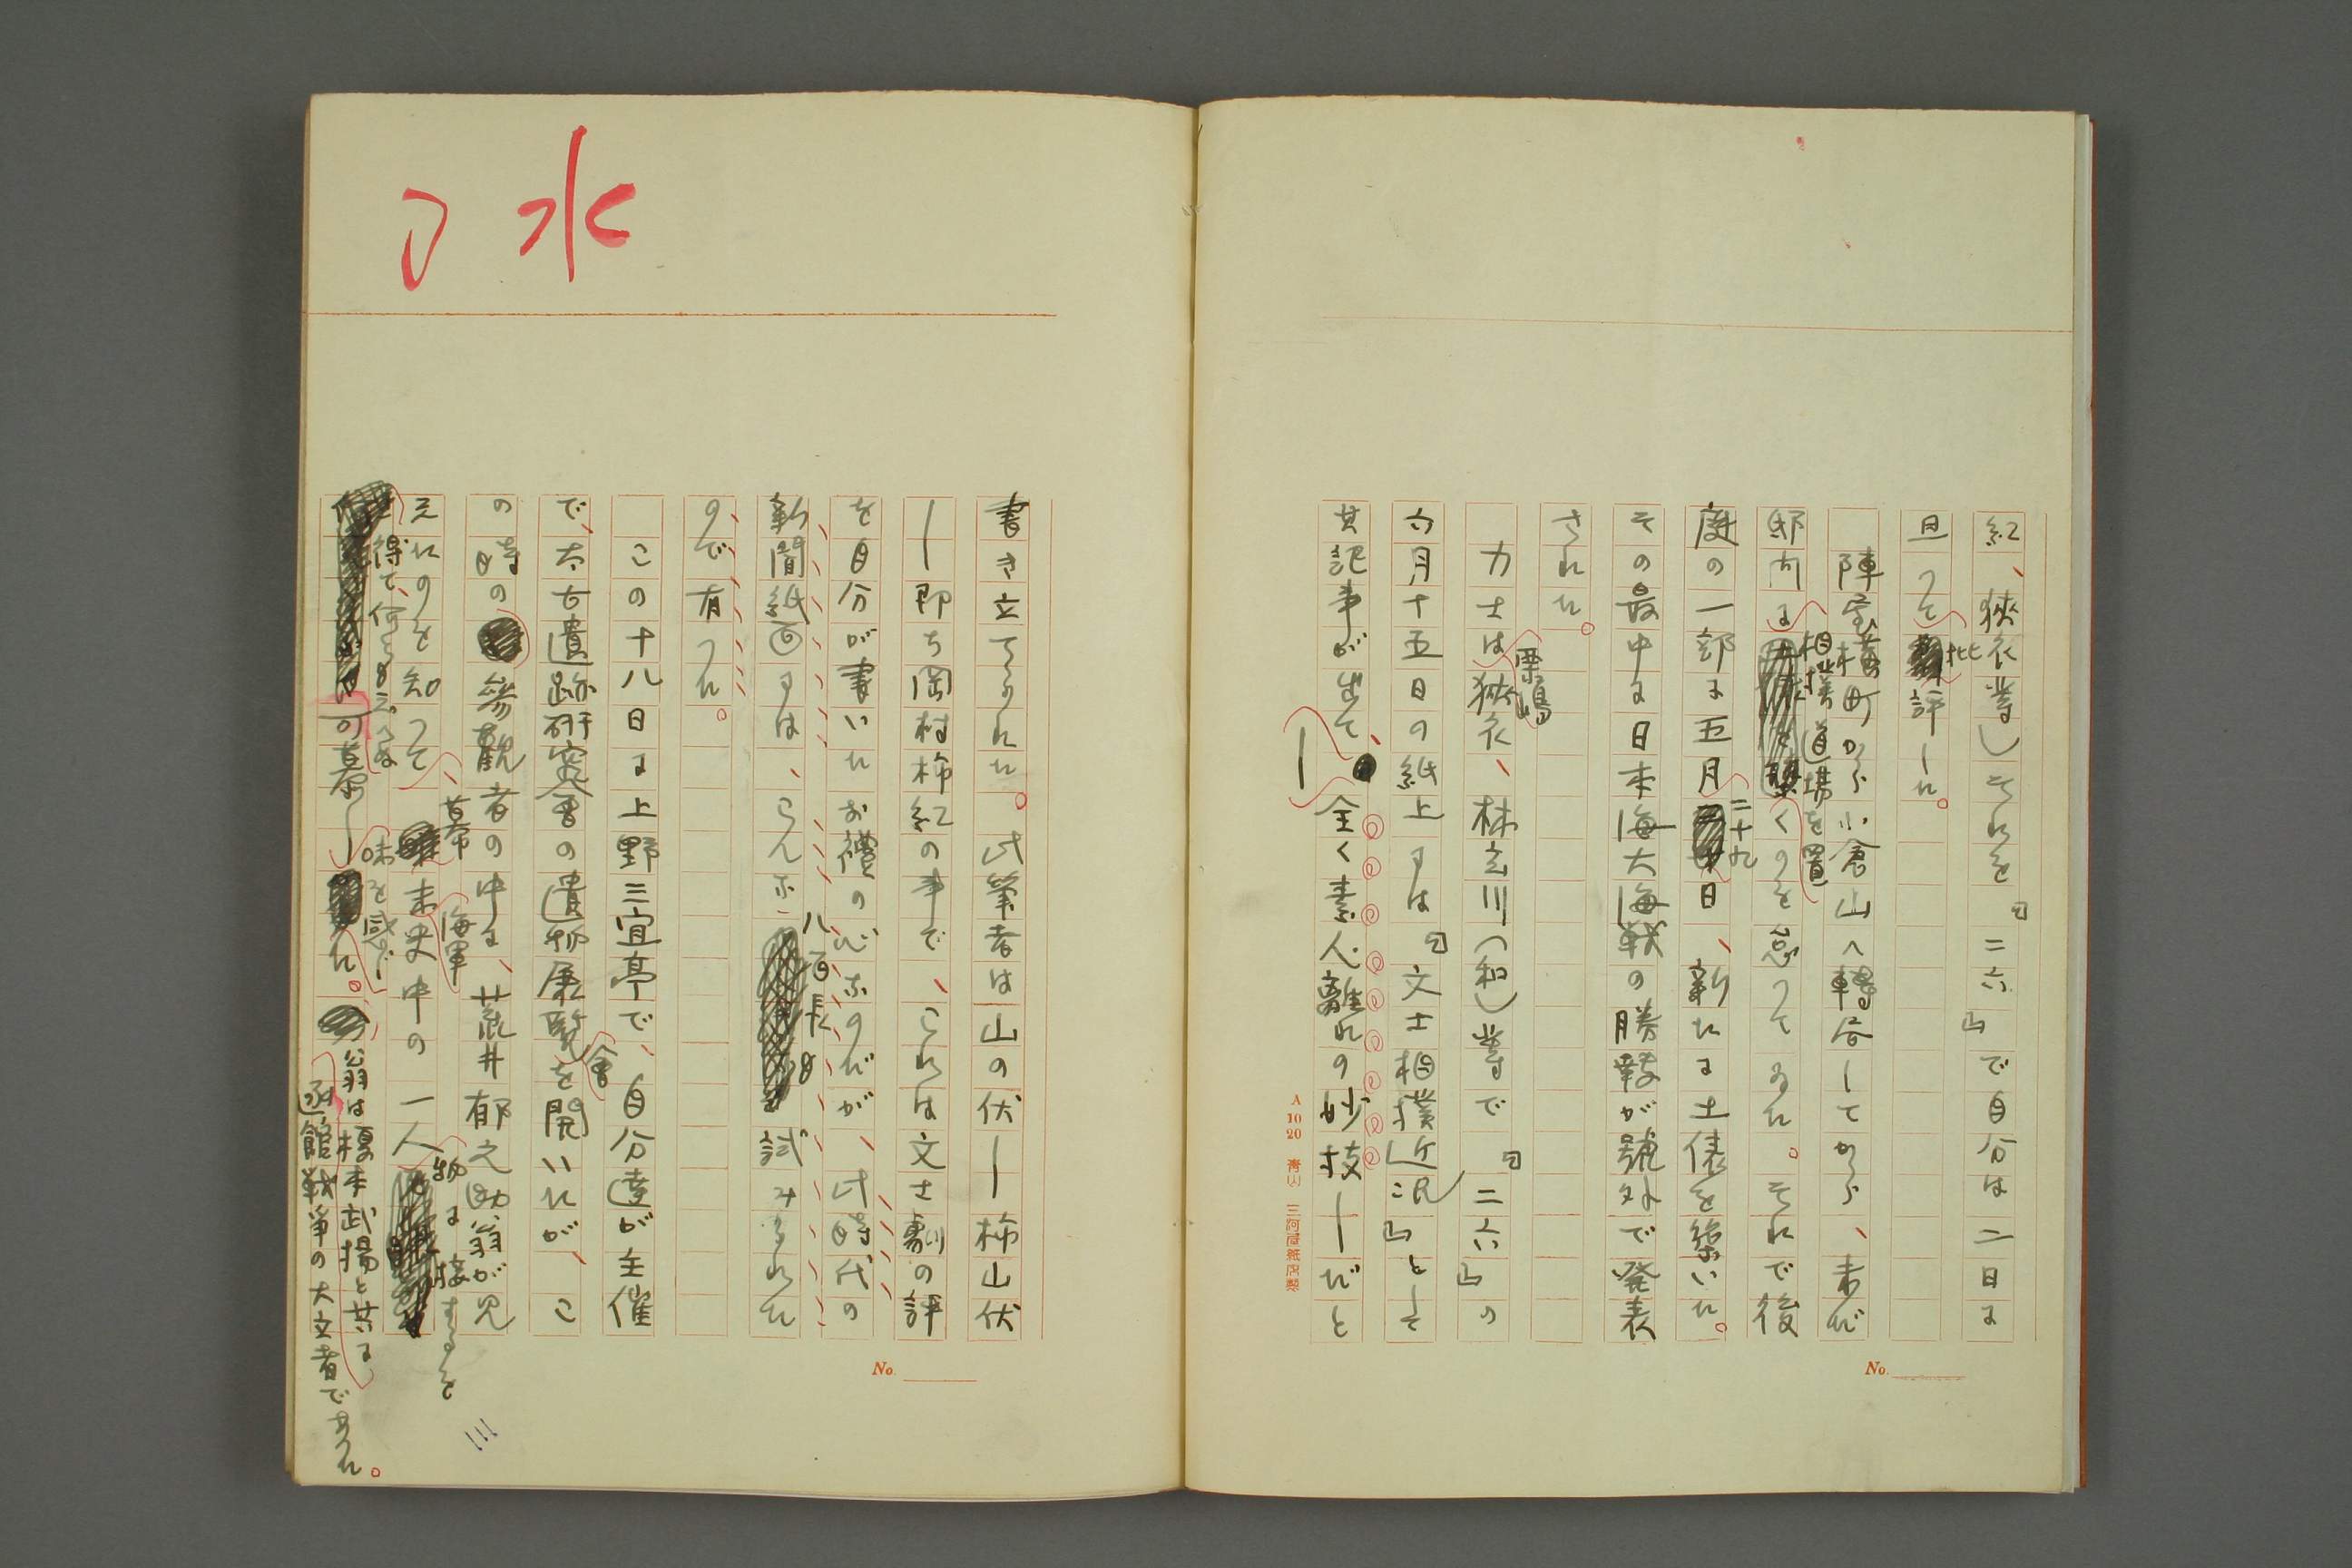 紅、狹衣等)それを『二六』で自分は二日に
亘つて批評した。
陣屋橫町から小倉山へ轉居してから、未だ
邸内に相撲道場を置くのを怠つてゐた。それで後
庭の一部に五月二十九日、新たに土俵を築いた。
その最中に日本海大海戰の勝報が號外で発表
された。
力士は栗嶋狹衣、林玄川(和)等で『二六』の
六月十五日の紙上には『文士相撲近況』として
其記事が出て、
―全く素人離れの妙技―だと
A 10 20 青山 三河屋紙店製
No.
水
書き立てられた。此筆者は山の伏―柿山伏
―即ち岡村柿紅の事で、これは文士劇の評
を自分が書いたお禮の心のだが、此時代の
新聞紙面には、らんぷ八百長も試みられた
ので有つた。
この十八日に上野三宜亭で、自分達が主催
で、太古遺跡研究會の遺物展覧會を開いたが、こ
の時の參觀者の中に、荒井郁之助翁が見
えたのを知つて、幕末海軍史中の一人物に接するを
得て、何とも云へぬ味を感じた。翁は榎本武揚と共に
函館戦争の大立者であつた。
No.